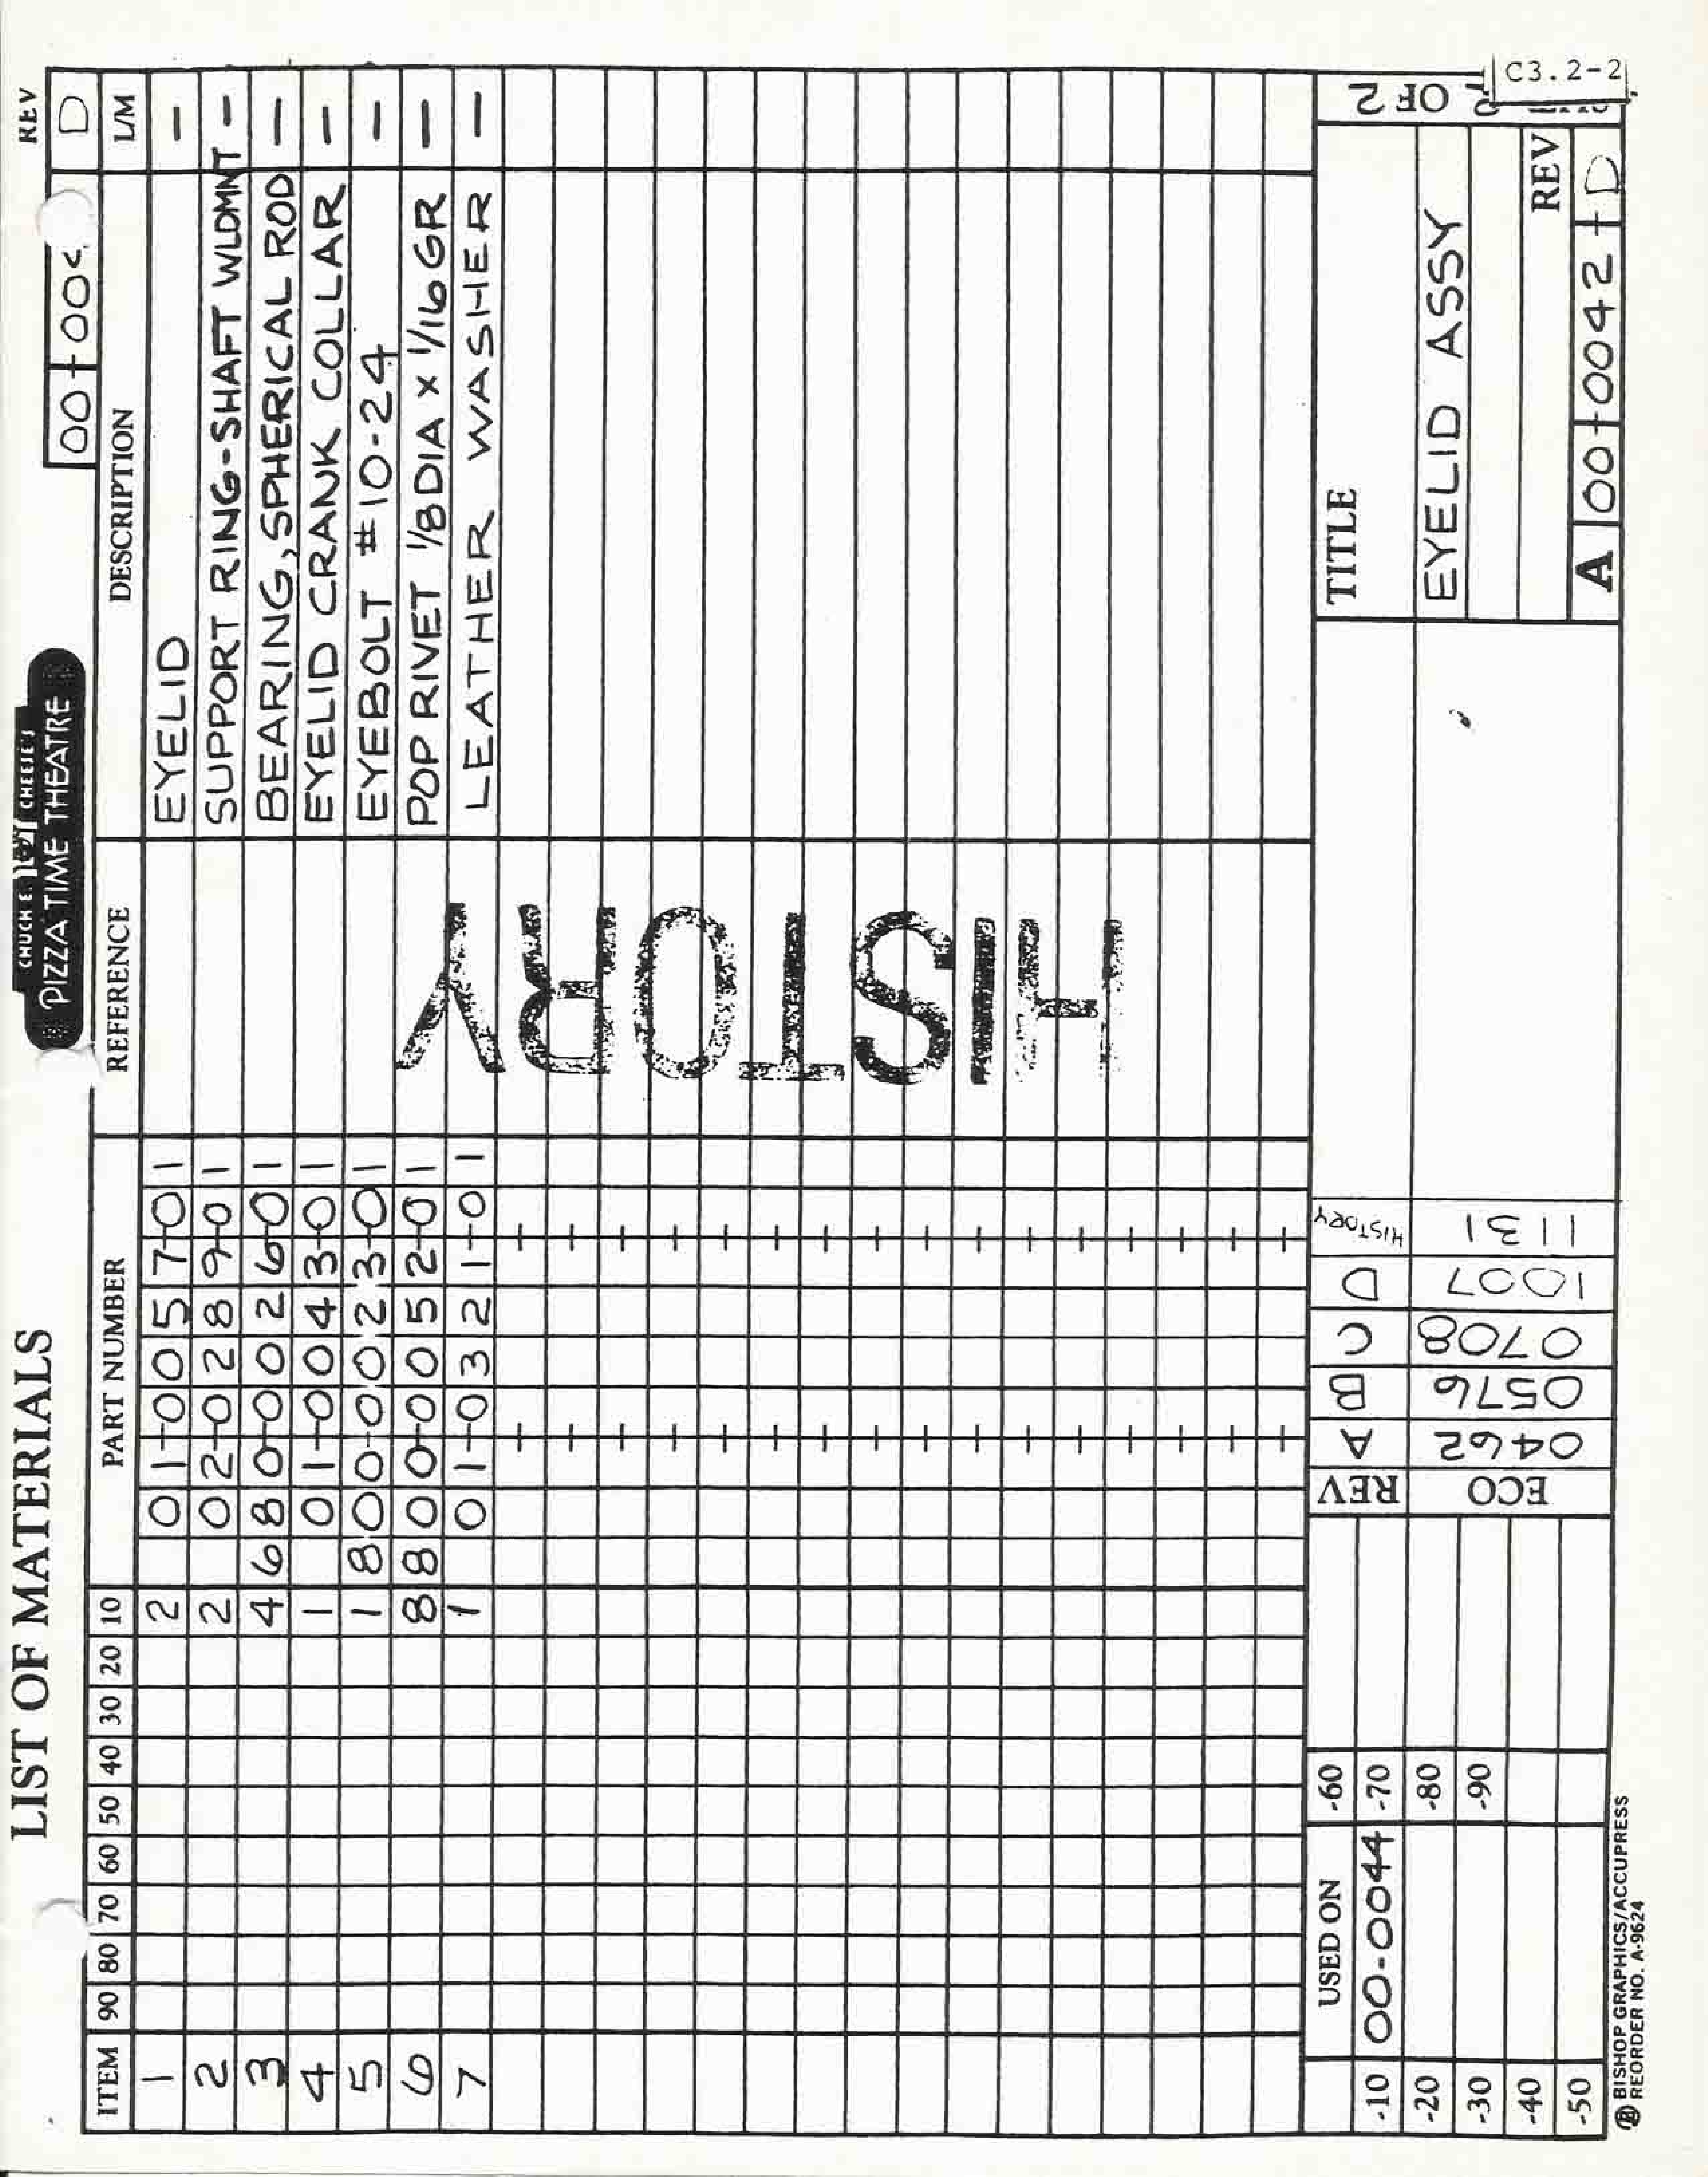 LIST OF MATERIALS
CHUCK E. CHEESE'S
PIZZA TIME THEATRE
REV
00-00 D
ITEM 90 80 70 60 50 40 30 20 10 PART NUMBER REFERENCE DESCRIPTION L/M
1 2 01-0057-01 EYELID —
2 2 02-0289-01 SUPPORT RING-SHAFT WLDMNT —
3 4 680-0026-01 BEARING, SPHERICAL ROD —
4 1 01-0043-01 EYELID CRANK COLLAR —
5 1 800-0023-01 EYEBOLT #10-24 —
6 8 800-0052-01 POP RIVET 1/8DIA x 1/16GR —
7 1 01-0321-01 LEATHER WASHER —
HISTORY
USED ON
-10 00-0044 -60
-20 -70
-30 -80
-40 -90
-50
REV A B C D HISTORY
ECO 0462 0576 0708 1007 1131
TITLE
EYELID ASSY
REV
A 00-0042-D
OF 2
C3.2-2
BISHOP GRAPHICS/ACCUPRESS
REORDER NO. A-9624